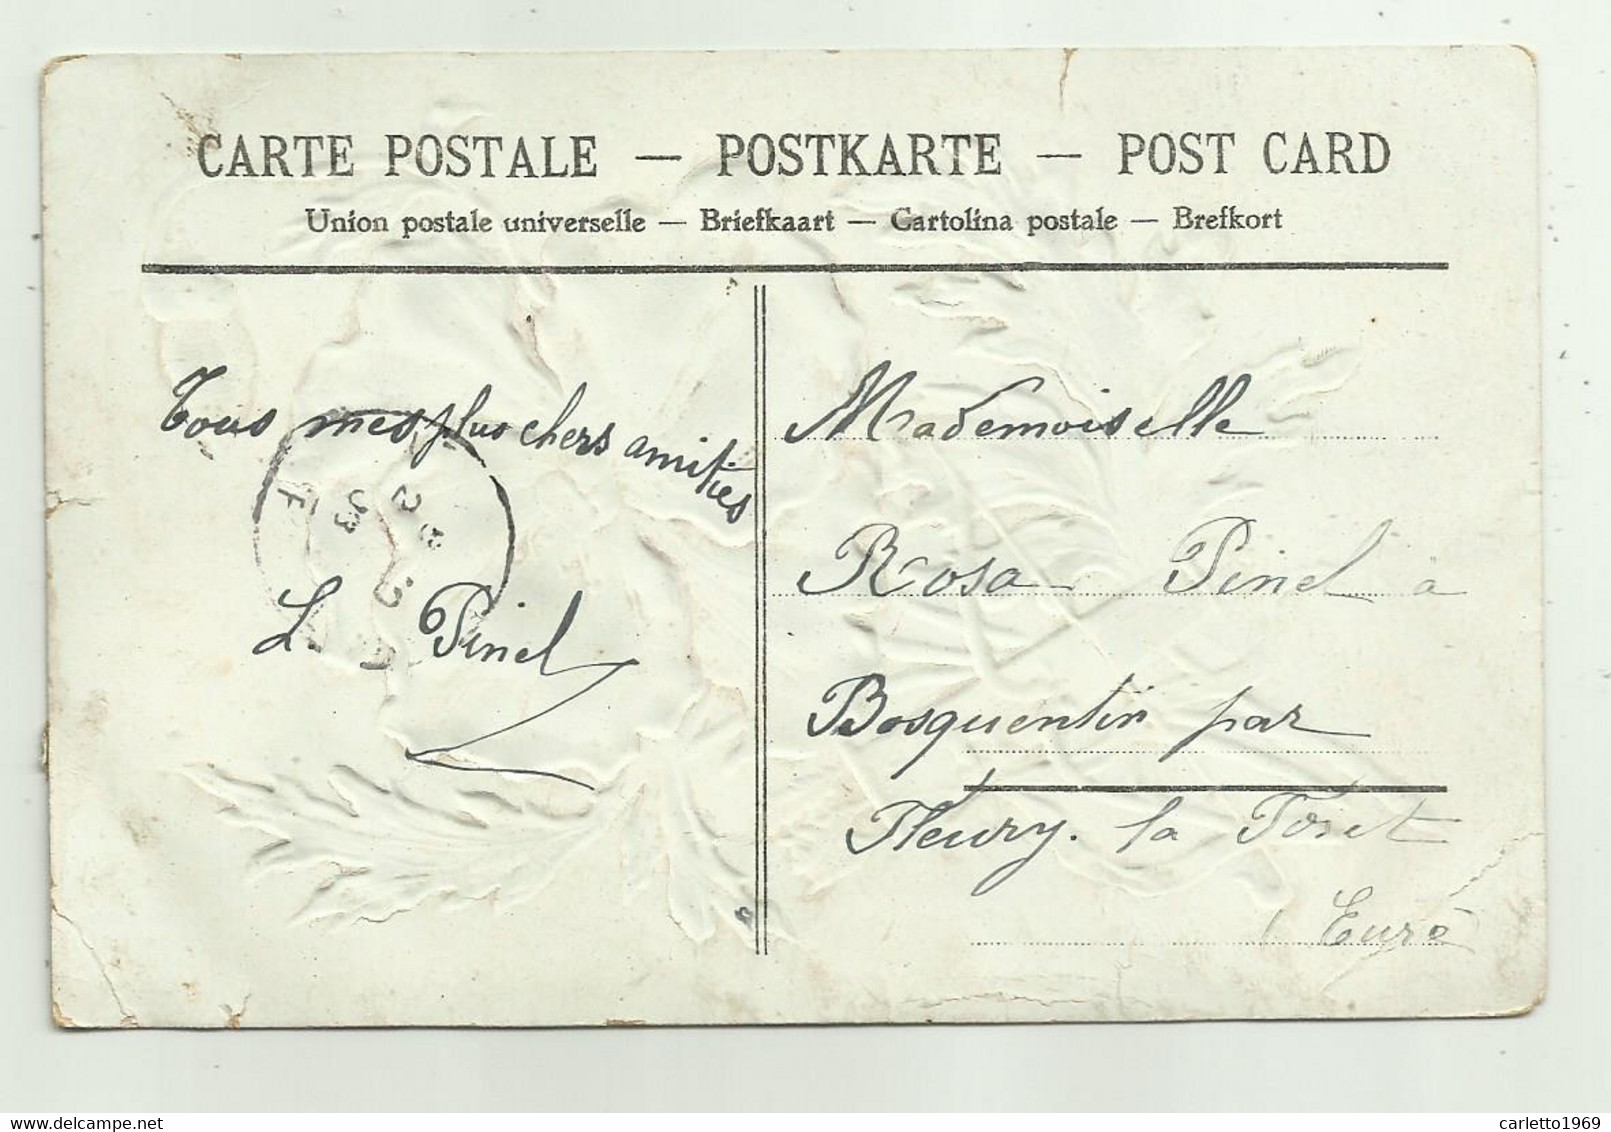 CARTE POSTALE — POSTKARTE — POST CARD
Union postale universelle — Briefkaart — Cartolina postale — Brefkort
Tous mes plus chers amitiés
L. Pinel
Mademoiselle
Rosa Pinel a
Bosquentin par
Fleury. la Foret
(Eure)
delcampe.net
carletto1969